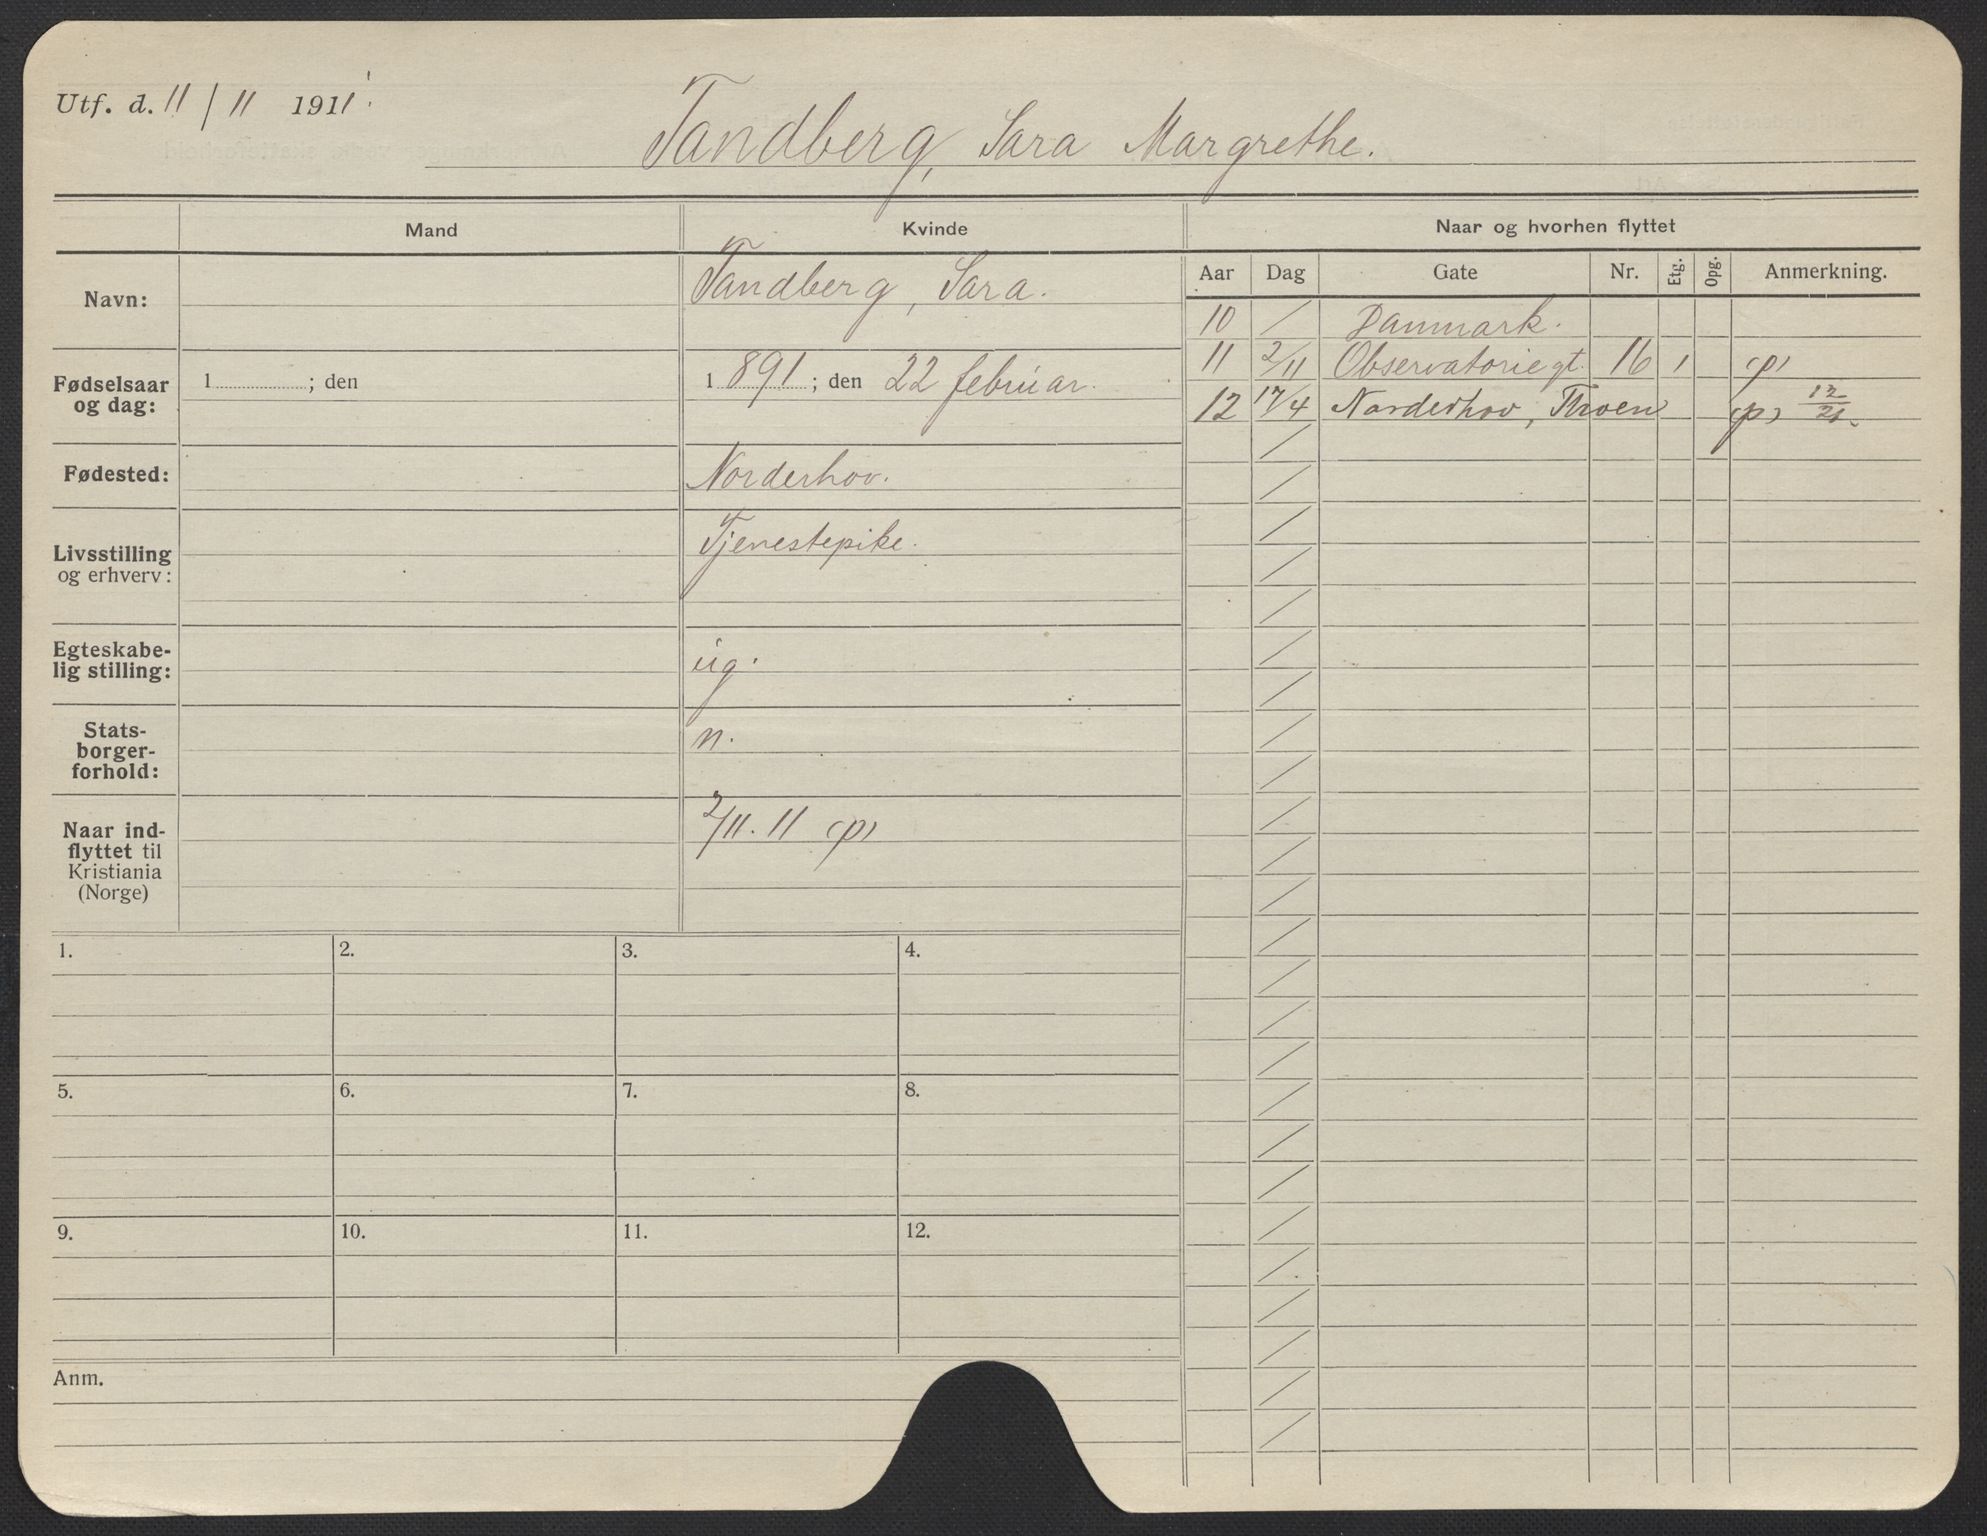 Utf. d. 11/11 1911.
Tandberg, Sara Margrethe.
Mand Kvinde Naar og hvorhen flyttet
Aar Dag Gate Nr. Etg. Opg. Anmerkning.
Navn: Tandberg, Sara.
Fødselsaar og dag: 1 ; den 1891; den 22 februar.
Fødested: Norderhov.
Livsstilling og erhverv: Tjenestepike.
Egteskabe-
lig stilling: ug.
Stats-
borger-
forhold: n.
Naar ind-
flyttet til
Kristiania
(Norge) 2/11. 11 (p)
10 / Danmark.
11 2/11 Observatoriegt. 16 1 (p)
12 17/4 Norderhov, Thoen (p) 12/21.
1. 2. 3. 4.
5. 6. 7. 8.
9. 10. 11. 12.
Anm.